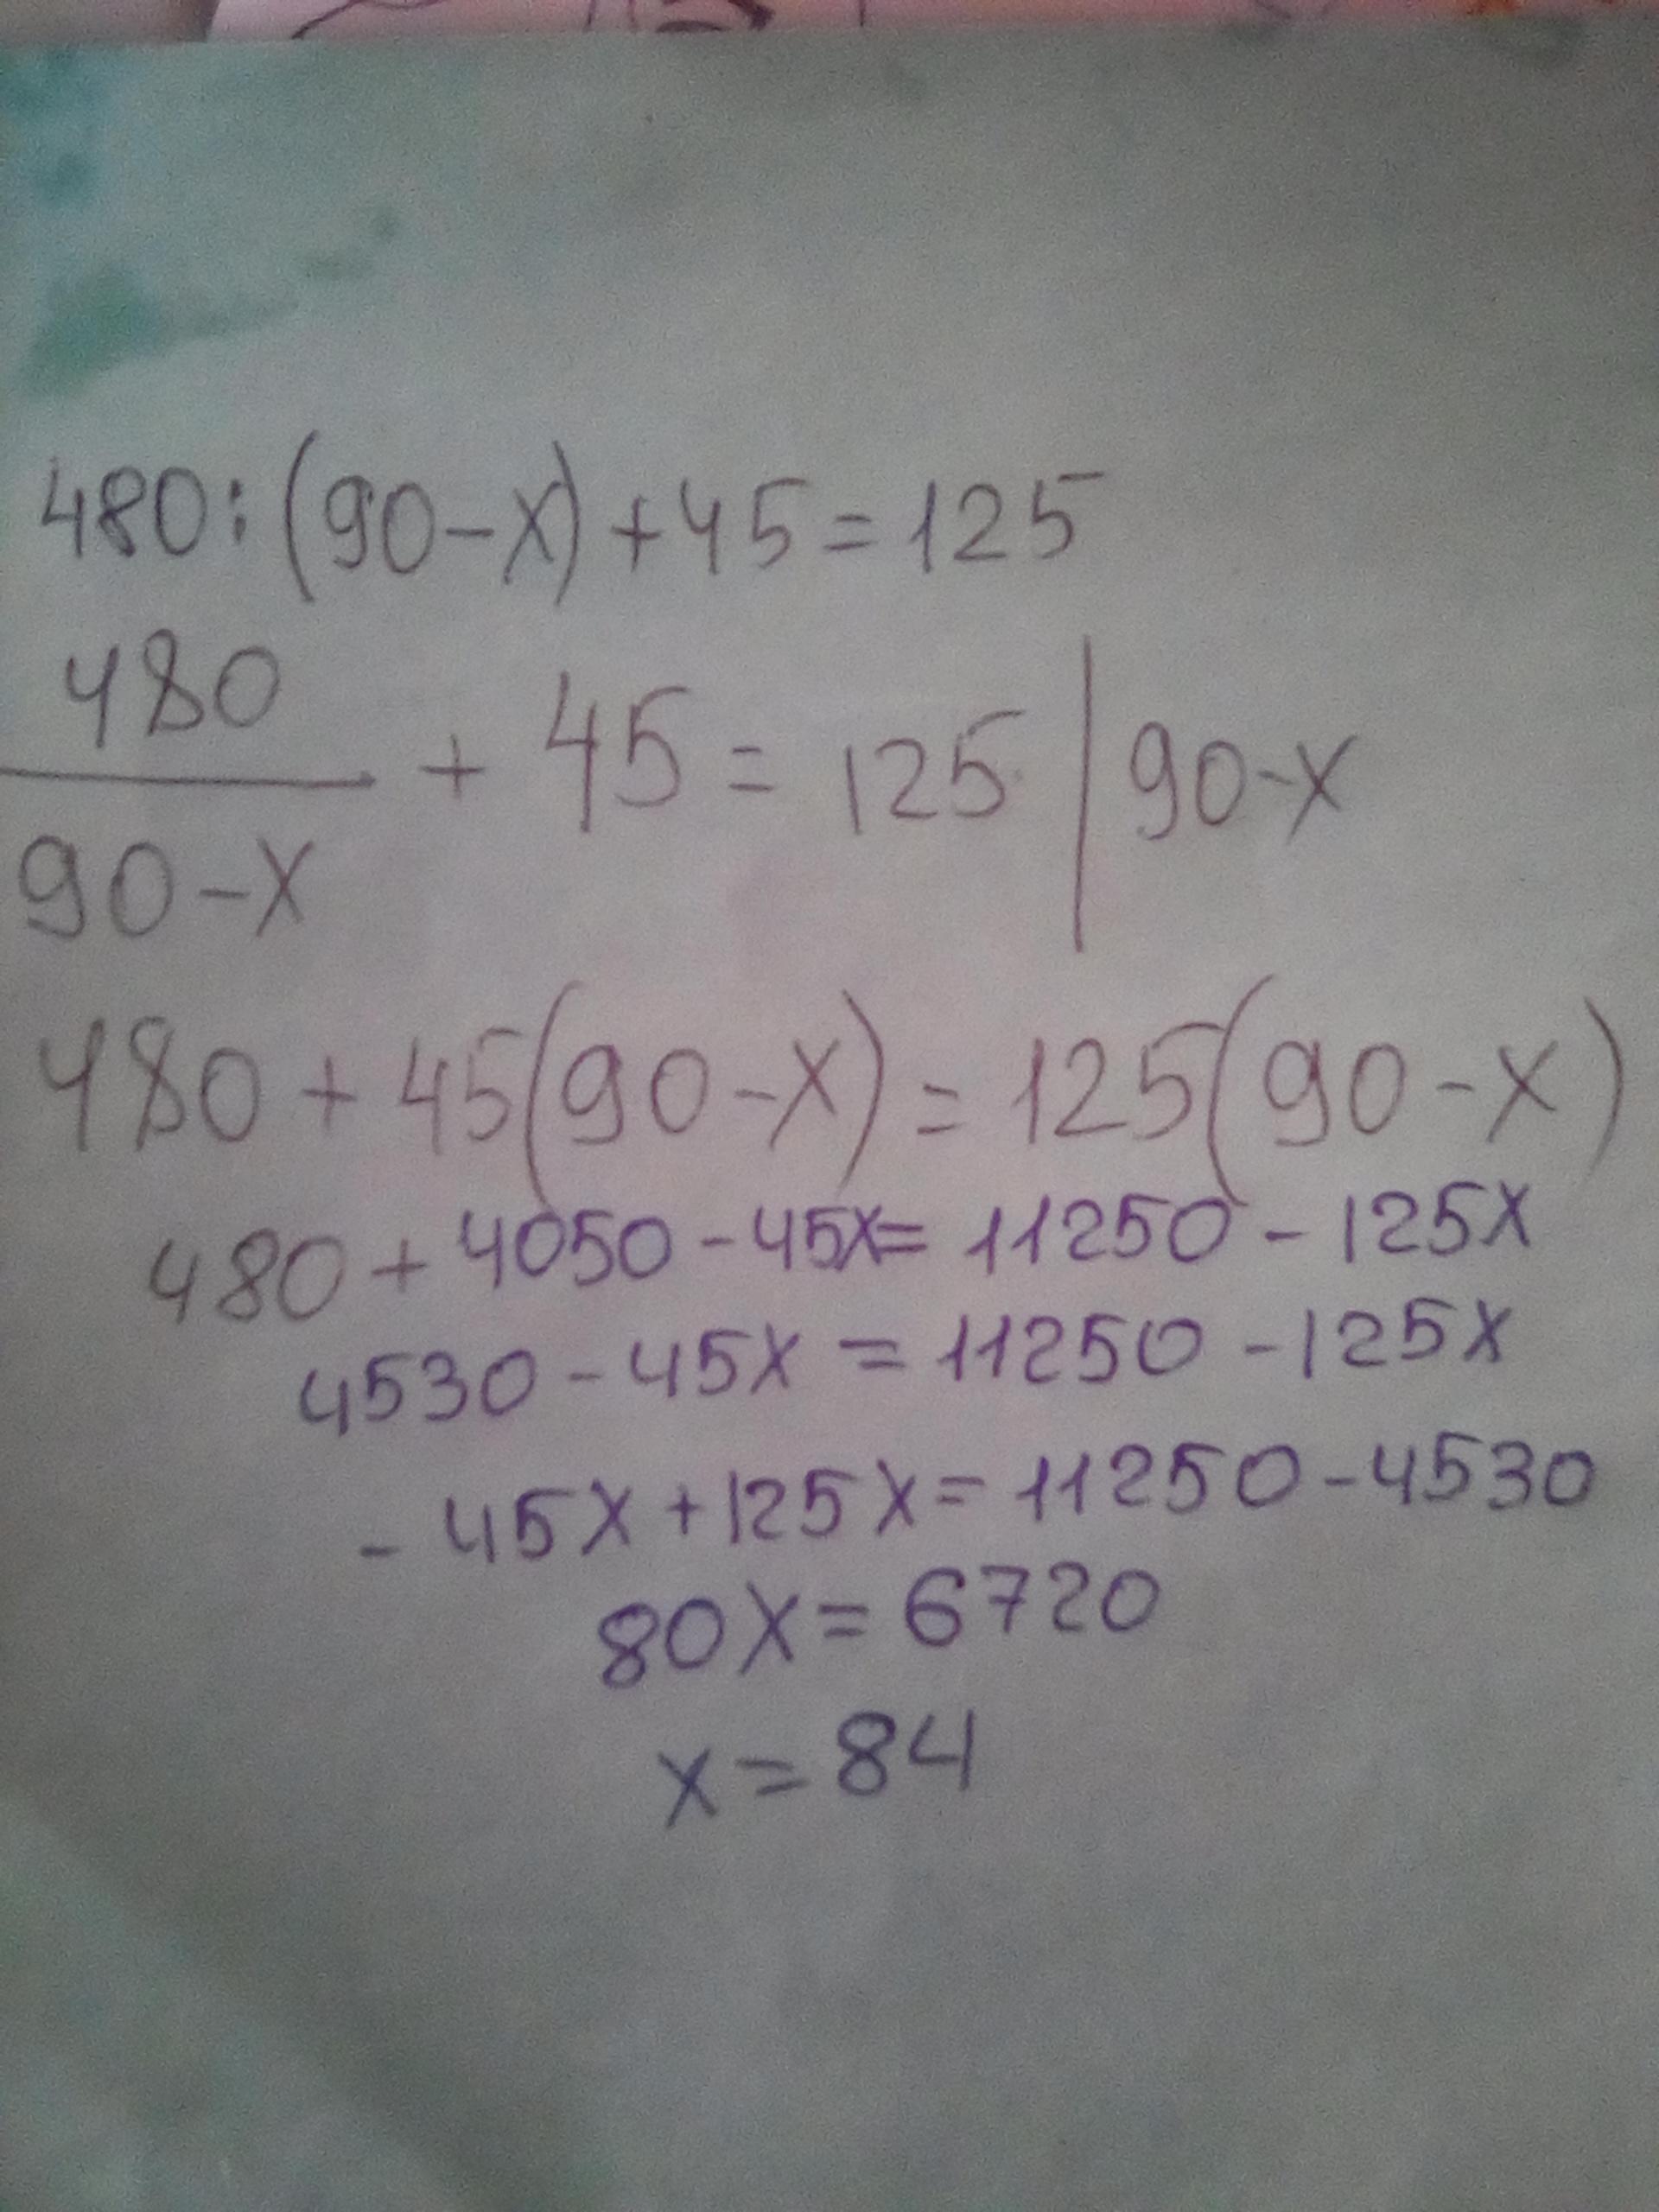 480:(90-x)+45=125
480/(90-x) + 45 = 125 | 90-x
480+45(90-x)=125(90-x)
480+4050-45x=11250-125x
4530-45x=11250-125x
-45x+125x=11250-4530
80x=6720
x=84